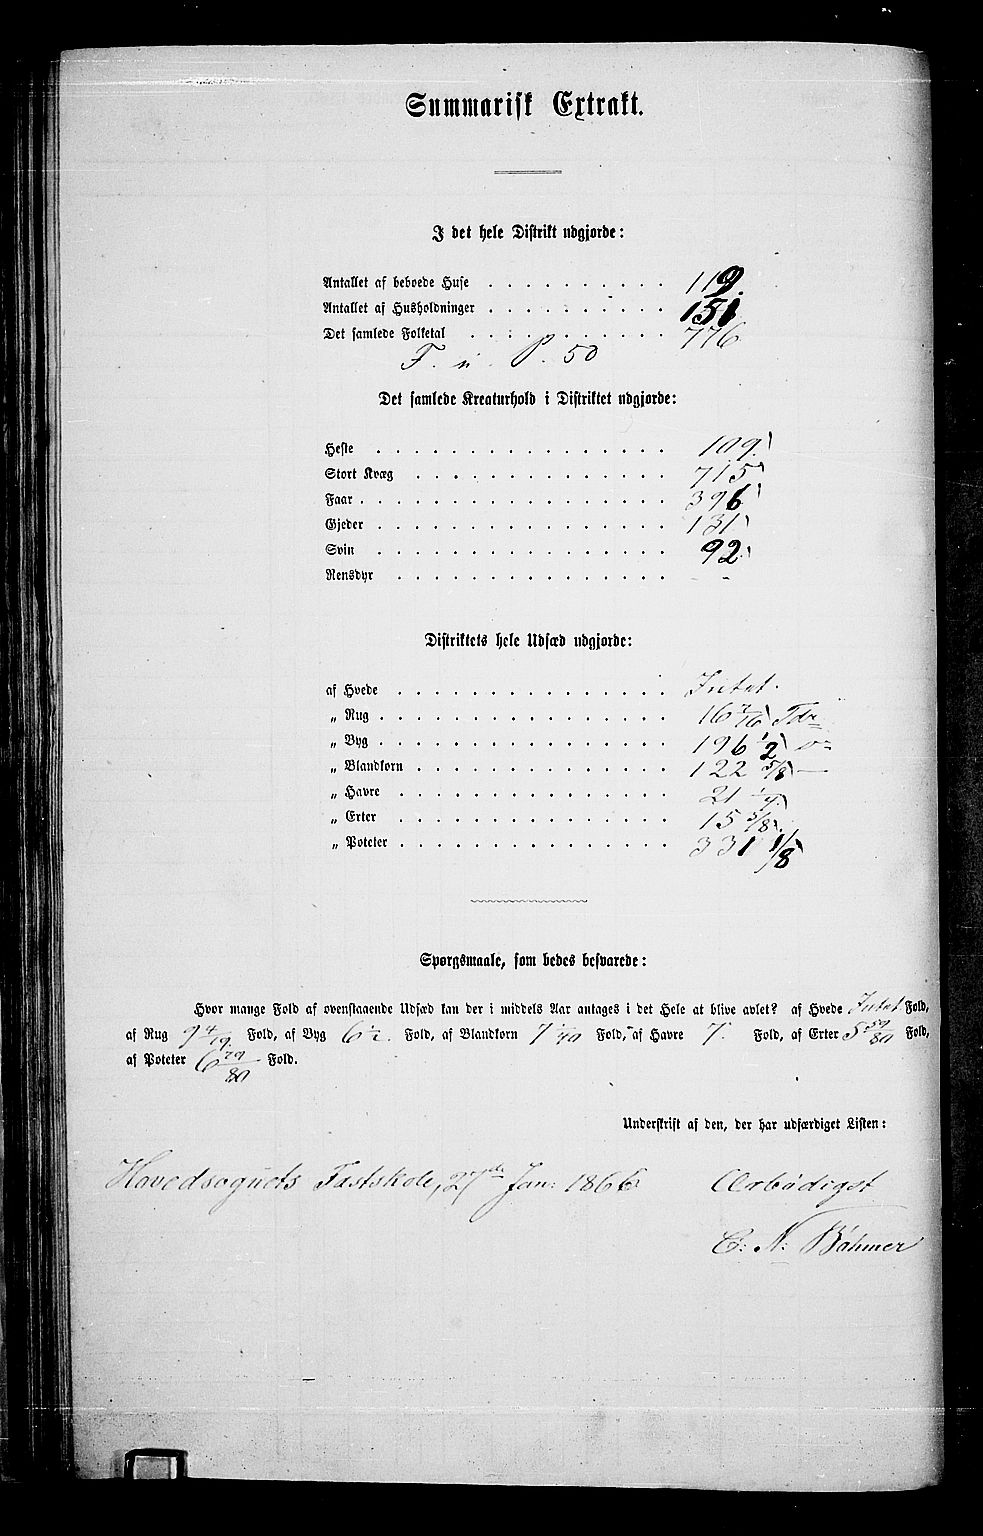 Summarisk Extrakt.
I det hele Distrikt udgjorde:
Antallet af beboede Huse . . . . . . . . . . 119.
Antallet af Husholdninger . . . . . . . . . . 151
Det samlede Folketal . . . . . . . . . . . 776
F. u. P. 50
Det samlede Kreaturhold i Distriktet udgjorde:
Heste . . . . . . . . . . . . . . . . 109.
Stort Kvæg . . . . . . . . . . . . . . 715
Faar . . . . . . . . . . . . . . . . . 396
Gjeder . . . . . . . . . . . . . . . . 131
Svin . . . . . . . . . . . . . . . . 92
Rensdyr . . . . . . . . . . . . . . . - -
Distriktets hele Udsæd udgjorde:
af Hvede . . . . . . . . . . . . . . . Intet.
„ Rug . . . . . . . . . . . . . . . . 16 Tdr
„ Byg . . . . . . . . . . . . . . . . 196 1/2
„ Blandkorn . . . . . . . . . . . . . . 122 5/8 —
„ Havre . . . . . . . . . . . . . . . 21
„ Erter . . . . . . . . . . . . . . . 15 5/8
„ Poteter . . . . . . . . . . . . . . . 331 1/8
Spørgsmaale, som bedes besvarede:
Hvor mange Fold af ovenstaaende Udsæd kan der i middels Aar antages i det Hele at blive avlet? af Hvede Intet Fold,
af Rug 9 4/19 Fold, af Byg 6 1/2 Fold, af Blandkorn 7 1/40 Fold, af Havre 7. Fold, af Erter 5 59/80 Fold,
af Poteter 6 79/80 Fold.
Underskrift af den, der har udfærdiget Listen:
Hovedsognets Fastskole, 27de Jan: 1866 Ærbødigst
C: N: Bøhmer